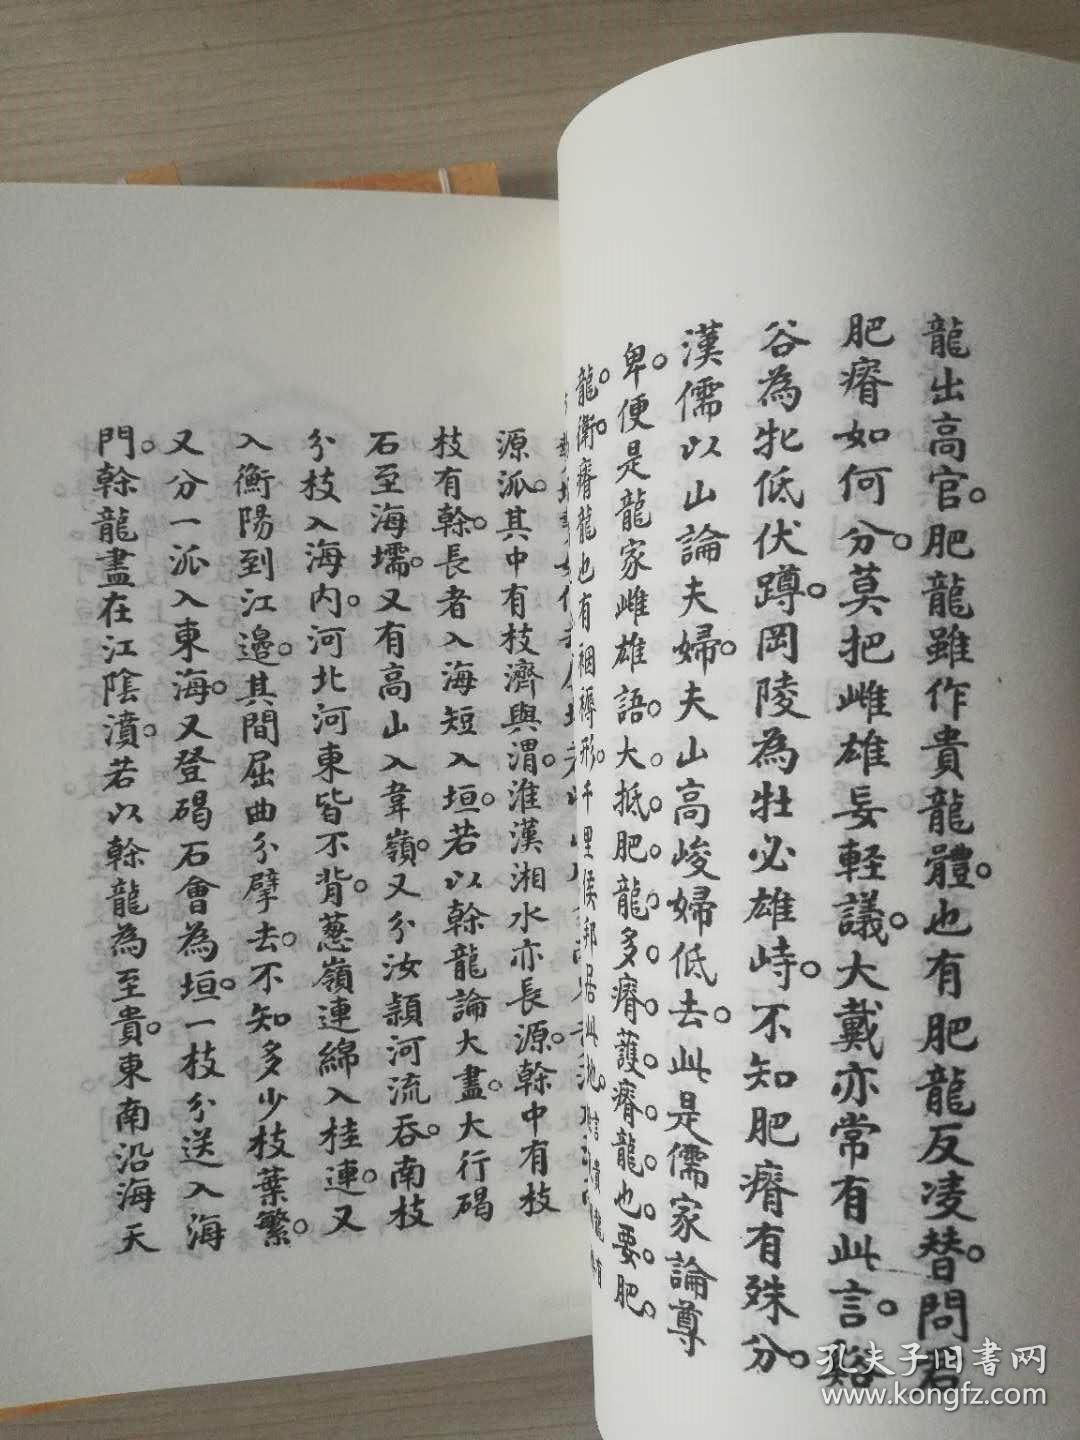 龍出高官。肥龍雖作貴龍體。也有肥龍反凌替。問君
肥瘠如何分。莫把雌雄妄輕議。大戴亦常有此言。谿
谷為牝低伏蹲。岡陵為牡必雄峙。不知肥瘠有殊分。
漢儒以山論夫婦。夫山高峻婦低去。此是儒家論尊
卑。便是龍家雌雄語。大抵肥龍多瘠護。瘠龍也要肥
龍衛。瘠龍也有裀褥形。千里侯邦居此地。
源派。其中有枝濟與渭。淮漢湘水亦長源。榦中有枝
枝有榦。長者入海短入垣。若以榦龍論大盡。大行碣
石至海壖。又有高山入韋嶺。又分汝潁河流吞。南枝
分枝入海內。河北河東皆不背。蔥嶺連綿入桂連。又
入衡陽到江邊。其間屈曲分擘去。不知多少枝葉繁。
又分一派入東海。又登碣石會為垣。一枝分送入海
門。榦龍盡在江陰濆。若以榦龍為至貴。東南沿海天
孔夫子旧書网
www.kongfz.com